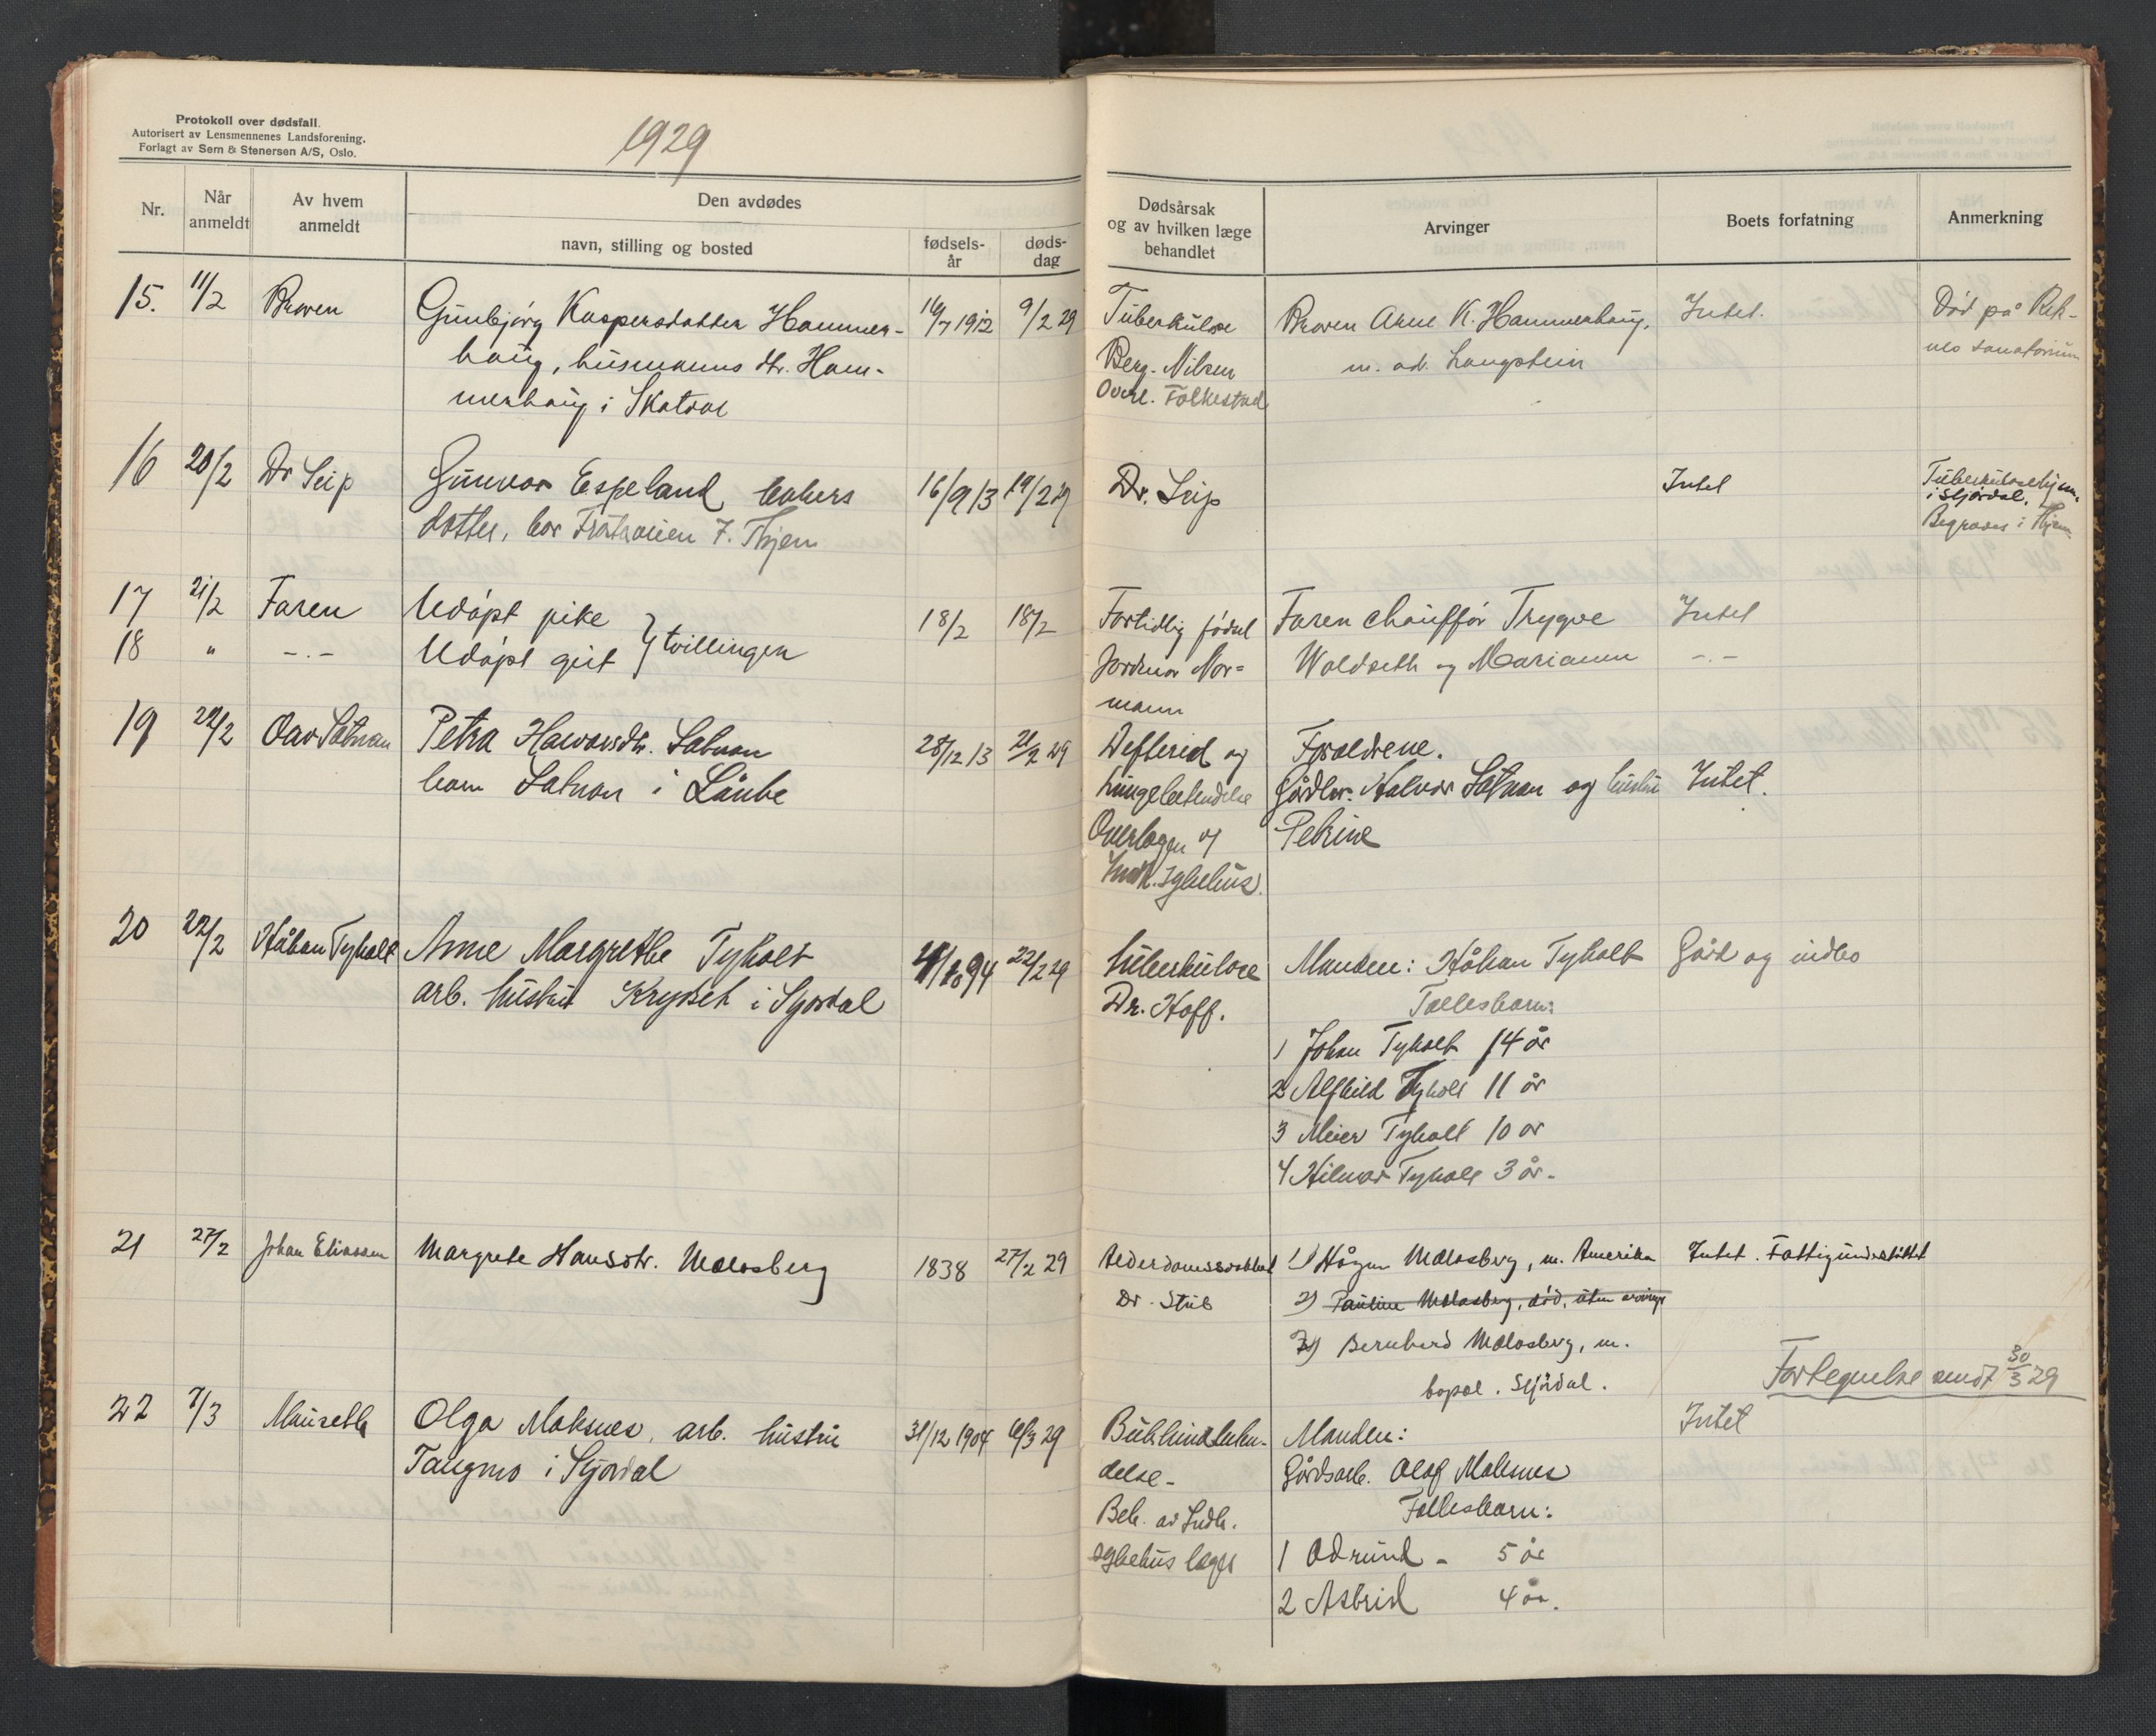 Protokoll over dødsfall.
Autorisert av Lensmennenes Landsforening.
Forlagt av Sem & Stenersen A/S, Oslo.
1929
Nr.
Når anmeldt
Av hvem anmeldt
Den avdødes
navn, stilling og bosted
fødsels-år
døds-dag
Dødsårsak og av hvilken læge behandlet
Arvinger
Boets forfatning
Anmerkning
15. 11/2 Broren Gunbjørg Kaspersdatter Hammer- 16/7 1912 9/2 29 Tuberkulose Broren Arne K. Hammerhaug, Intet. Død på Rek-
haug, husmanns dtr. Ham- Berg-Nilsen m. ad. Langstein nes sanatorium
merhaug i Skatval Overl. Folkestad
16 20/2 Dr Seip Gunvor Espeland 16/9 13 19/2 29 Dr. Seip Intet Tuberkulosehjem.
datter, i Stjørdal.
Begraves i
17 21/2 Faren Udøpt pike 18/2 18/2 Fortidlig fødsel Faren chauffør Trygve Intet
18 " -.- Udøpt gut } tvillinger Jordmor Nor- Woldseth og Mariann -.-
mann
19 22/2 Petra Havarsdtr. Satnan 28/12 13 21/2 29 Defterid og Foreldrene.
barn Satnan i Lånke lungebetendelse Gårdbr. Halvor Satnan og hustru Intet.
Overlægen v/ Petrine
Innh. sykehus.
20 22/2 Håkan Tyholt Anne Margrethe Tyholt 94 22/2 29 tuberkulose Manden: Håkan Tyholt Gård og indbo
arb. hustru i Stjørdal Dr. Hoff. Fællesbarn:
1 Johan Tyholt 14 år
2 Alfhild Tyholt 11 år
3 Meier Tyholt 10 år
4 Hilmar Tyholt 3 år.
21 27/2 Johan Eliassen Margrete Hansdtr. Molosberg 1838 27/2 29 Alderdomssvakhet 1) Hågen Molosberg, m. Amerika Intet. Fattigunderstøttet
Dr. Stub 2) Pauline Molosberg, død, uten arvinger
3) Bernhard Molosberg, m.
bopæl. Stjørdal.
Fortegnelse sendt 30/3 29
22 7/3 Olga Moksnes, arb. hustru 31/12 1904 6/3 29 Bukhindebeten- Manden: Intet
Tangmo i Stjørdal delse - Gårdsarb. Olaf Moksnes
Beh. av Indh. Fællesbarn:
sykehus læger 1 Odrund - 5 år
2 Asbrid 4 år.